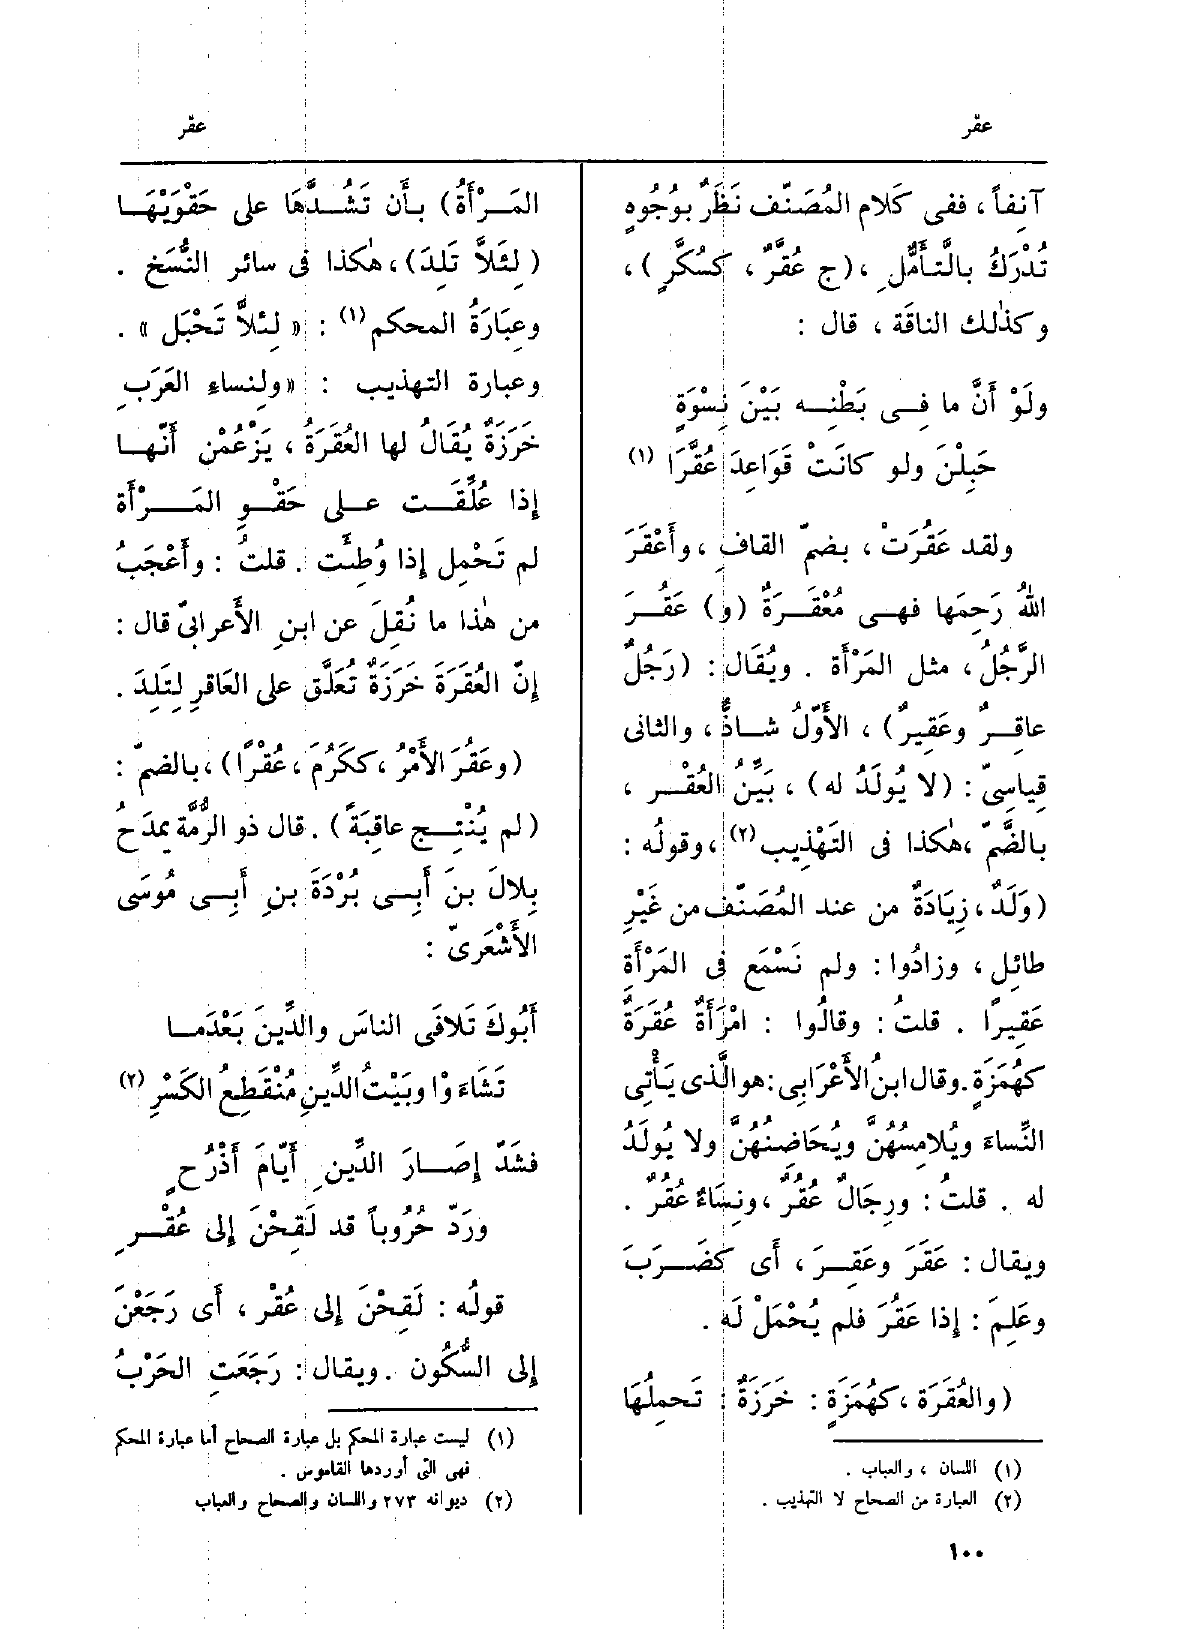 عقر
عقر
آنِفاً ، ففى كَلامِ المُصَنّف نَظَرٌ بوُجُوهٍ
تُدْرَكُ بالتَّأَمُّلِ ، (ج عُقَّرٌ ، كسُكَّرٍ) ،
وكذٰلك الناقَة ، قال :
ولَوْ أَنَّ ما فِى بَطْنِه بَيْنَ نِسْوَةٍ
حَبِلْنَ ولو كانَتْ قَوَاعِدَ عُقَّرَا (١)
ولقد عَقُرَتْ ، بضمّ القافِ ، وأَعْقَرَ
اللهُ رَحِمَها فهى مُعْقَرَةٌ (و) عَقُرَ
الرَّجُلُ ، مثل المَرْأَة . ويُقَال : (رَجُلٌ
عاقِرٌ وعَقِيرٌ) ، الأَوّلُ شاذٌّ ، والثانى
قِياسِىّ : (لا يُولَدُ له) ، بَيِّنُ العُقْرِ ،
بالضَّمّ ، هٰكذا فى التَهْذِيب (٢) ، وقولُه :
(وَلَدٌ ، زِيَادَةٌ من عند المُصَنّف من غَيْرِ
طائِلٍ ، وزادُوا : ولم نَسْمَع فى المَرْأَةِ
عَقِيرًا . قلتُ : وقالُوا : امْرَأَةٌ عُقَرَةٌ
كهُمَزَةٍ . وقال ابنُ الأَعْرَابِى : هو الَّذى يَأْتِى
النِّساءَ ويُلامِسُهُنَّ ويُحَاضِنُهُنَّ ولا يُولَدُ
له . قلتُ : ورِجَالٌ عُقُرٌ ، ونِسَاءٌ عُقُرٌ .
ويقال : عَقَرَ وعَقِرَ ، أى كضَرَبَ
وعَلِمَ : إذا عَقُرَ فلم يُحْمَلْ لَه .
(والعُقَرَة ، كهُمَزَةٍ : خَرَزَةٌ : تَحمِلُهَا
(١) اللسان ، والعباب .
(٢) العبارة من الصحاح لا التهذيب .
المَرْأَةُ) بأَن تَشُدَّهَا على حَقْوَيْهَا
(لِئلاَّ تَلِدَ) ، هٰكذا فى سائر النُّسَخِ .
وعِبَارَةُ المحكم (١) : « لِئلاَّ تَحْبَل » .
وعبارة التهذيب : « ولِنساءِ العَرَبِ
خَرَزَةٌ يُقَالُ لها العُقَرَةُ ، يَزْعُمْن أَنّها
إذا عُلِّقَت على حَقْوِ المَرْأَة
لم تَحْمِل إذا وُطِئَت . قلتُ : وأَعْجَبُ
من هٰذا ما نُقِلَ عن ابنِ الأَعرابىّ قال :
إنّ العُقَرَةَ خَرَزَةٌ تُعَلَّق على العَاقِرِ لِتَلِدَ .
(وعَقُرَ الأَمْرُ ، ككَرُمَ ، عُقْرًا) ، بالضمّ :
(لم يُنْتِج عاقِبَةً) . قال ذو الرُّمَّة يمدَحُ
بِلالَ بنَ أَبِى بُرْدَةَ بنِ أَبِى مُوسَى
الأَشْعَرِىّ :
أَبُوكَ تَلافَى الناسَ والدِّينَ بَعْدَما
تَشَاءَوْا وبَيْتُ الدِّينِ مُنْقَطِعُ الكَسْرِ (٢)
فشَدّ إصَارَ الدِّينِ أَيّامَ أَذْرُحٍ
ورَدّ حُرُوباً قد لَقِحْنَ إلى عُقْرِ
قولُه : لَقِحْنَ إلى عُقْر ، أى رَجَعْنَ
إلى السُّكُون . ويقال : رَجَعَتِ الحَرْبُ
(١) ليست عبارة المحكم بل عبارة الصحاح أما عبارة المحكم
فهى التى أوردها القاموس .
(٢) ديوانه ٢٧٣ واللسان والصحاح والعباب
١٠٠